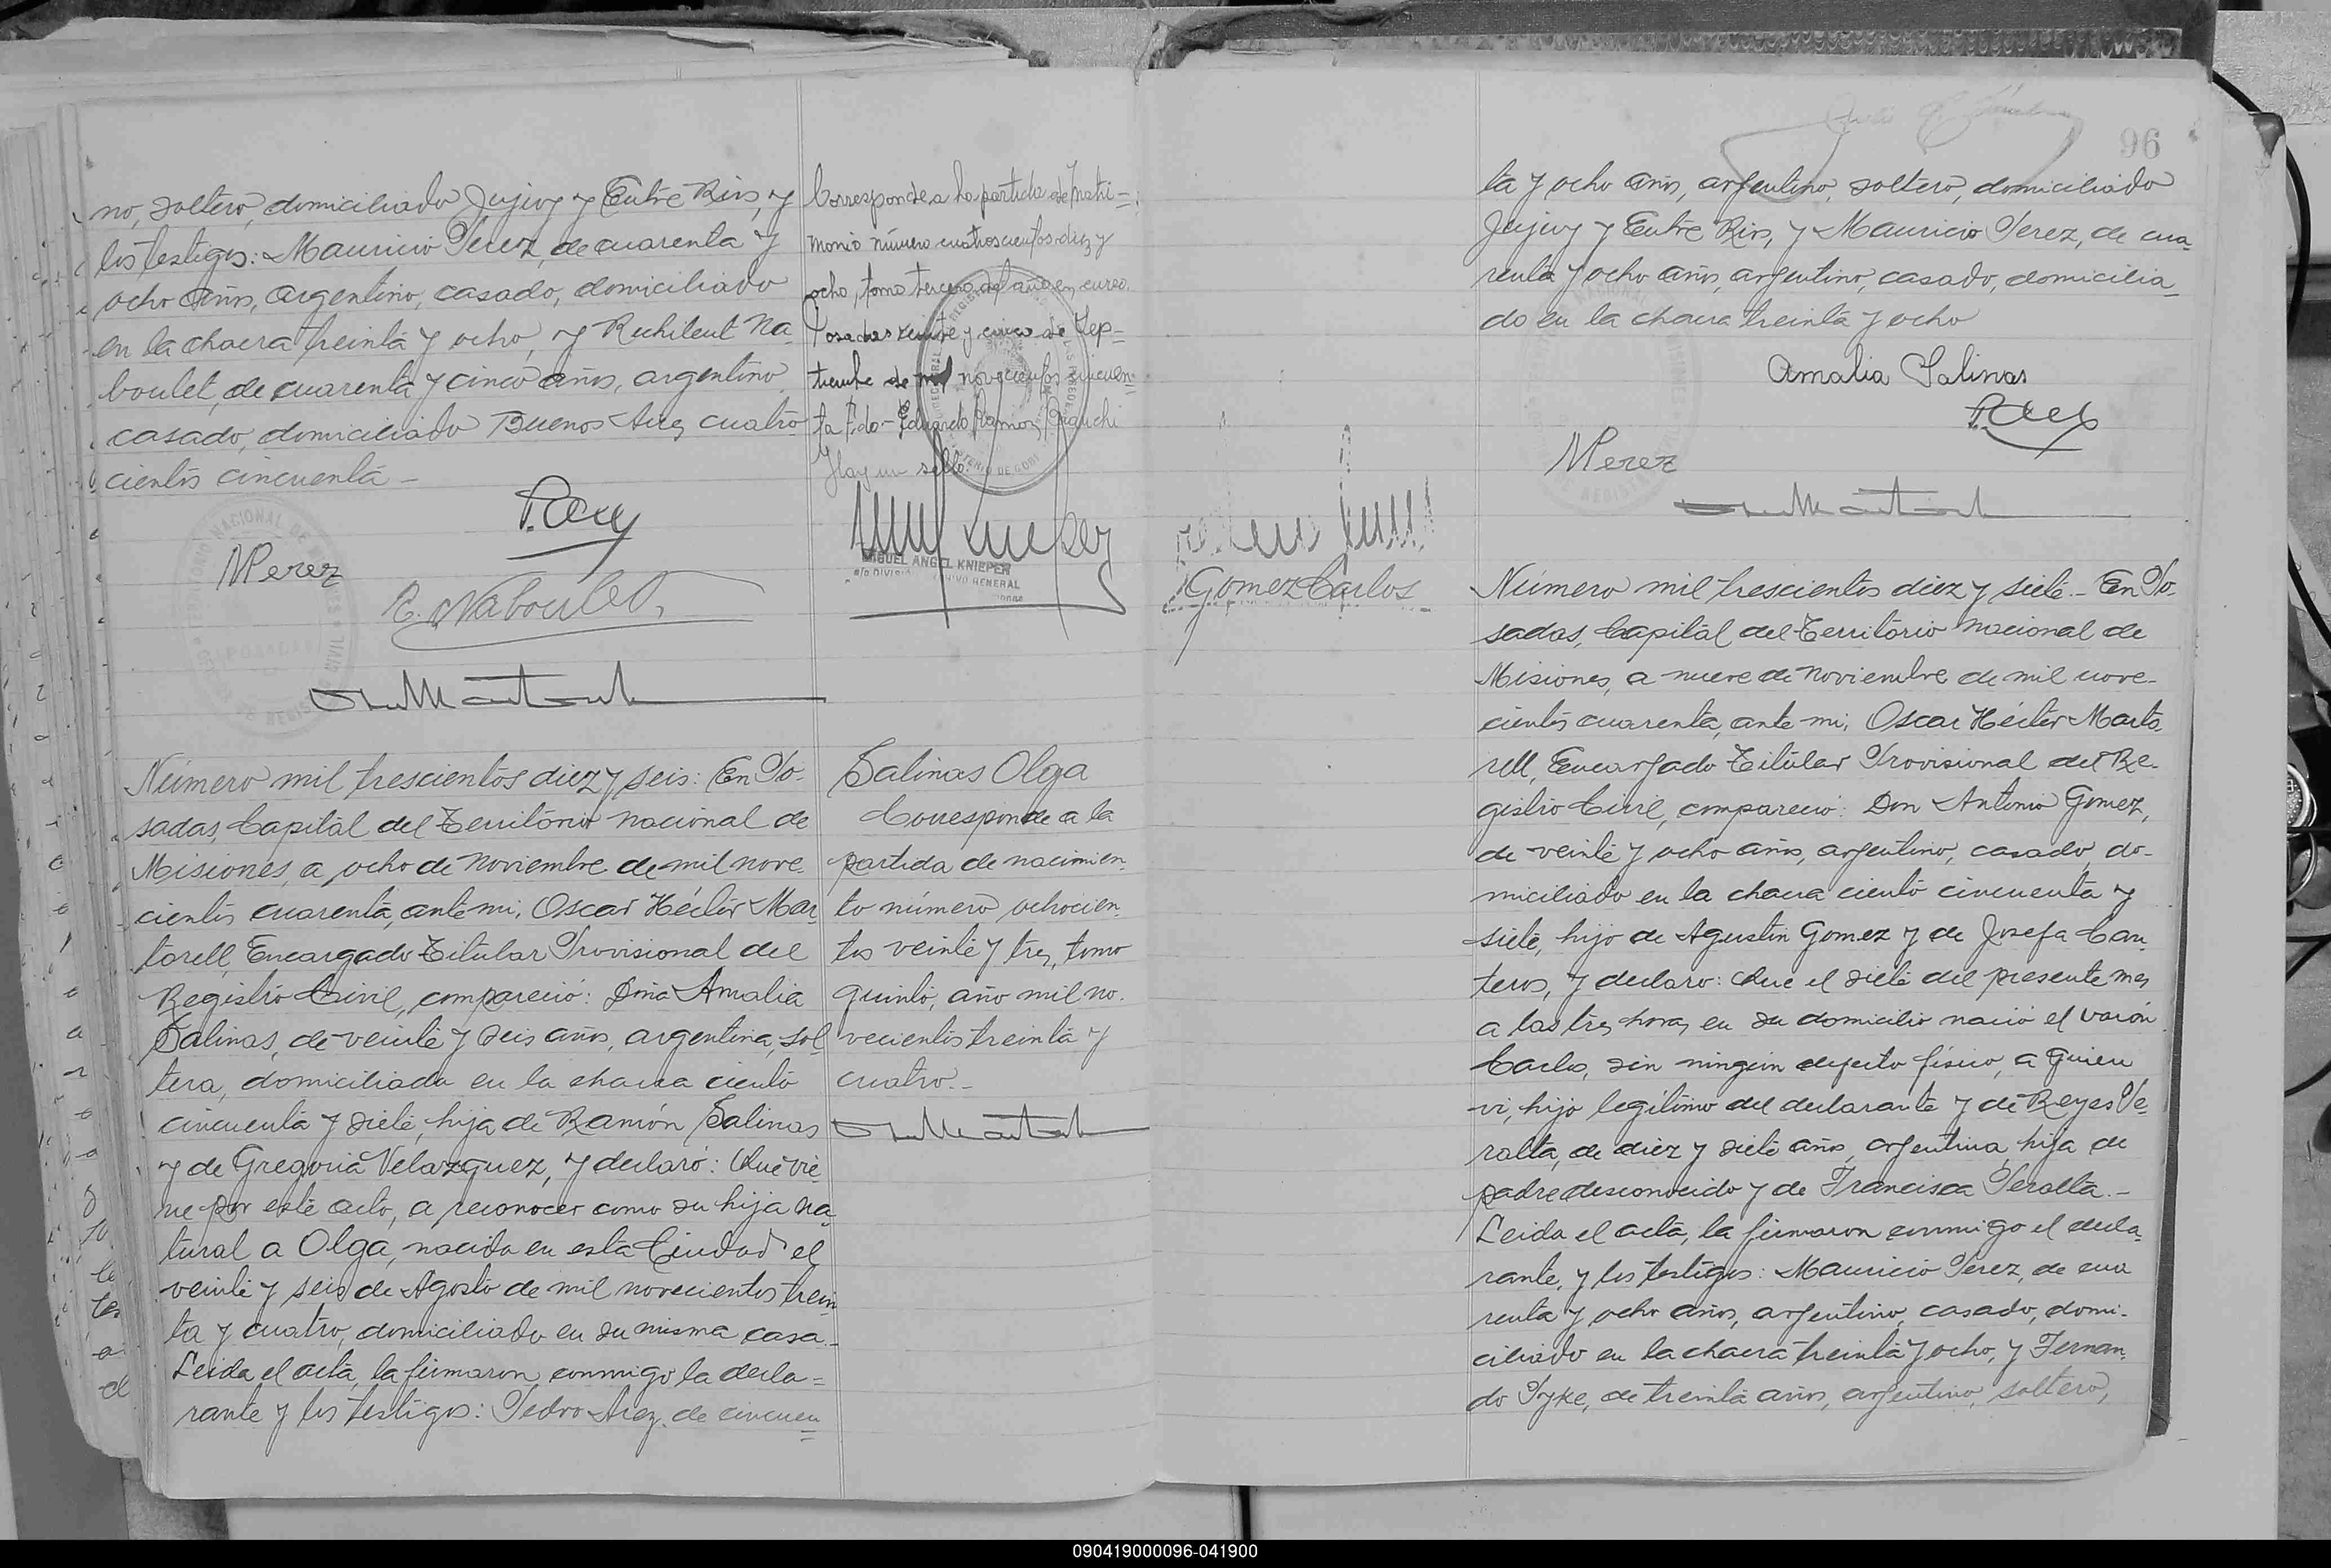 no, soltero, domiciliado Jujuy y Entre Rios, y
los testigos: Mauricio Perez, de cuarenta y
ocho años, argentino, casado, domiciliado
en la chacra treinta y ocho, y Ruhileut Na-
boulet, de cuarenta y cinco años, argentino,
casado, domiciliado Buenos Aires cuatro-
cientos cincuenta -
MPerez
R. Naboulet
Número mil trescientos diez y seis: En Po-
sadas, Capital del Territorio nacional de
Misiones, a ocho de Noviembre de mil nove-
cientos cuarenta, ante mi, Oscar Héctor Mar-
torell, Encargado Titular Provisional del
Registro Civil, compareció: Doña Amalia
Salinas, de veinte y seis años, argentina, sol-
tera, domiciliada en la chacra ciento
cincuenta y siete, hija de Ramón Salinas
y de Gregoria Velazquez, y declaró: Que vie-
ne por este acto, a reconocer como su hija na-
tural a Olga, nacida en esta Ciudad el
veinte y seis de Agosto de mil novecientos trein-
ta y cuatro, domiciliado en su misma casa.-
Leida el acta, la firmaron conmigo la decla=
rante y los testigos: Pedro Arez, de cincuen=
Corresponde a la partida de Matri=
monio número cuatroscientos diez y
ocho, tomo tercero del año en curso.
Posadas veinte y cinco de Sep=
tiembre de mil novecientos cincuen=
ta Fdo- Eduardo Ramon
Hay un sello.
MIGUEL ANGEL KNIEPER
Salinas Olga
Corresponde a la
partida de nacimien-
to número ochocien-
tos veinte y tres, tomo
quinto, año mil no-
vecientos treinta y
cuatro.-
Gomez Carlos
96
ta y ocho años, argentino, soltero, domiciliado
Jujuy y Entre Rios, y Mauricio Perez, de cua-
renta y ocho años, argentino, casado, domicilia-
do en la chacra treinta y ocho
Amalia Salinas
MPerez
Número mil trescientos diez y siete.- En Po-
sadas, Capital del Territorio nacional de
Misiones, a nueve de Noviembre de mil nove-
cientos cuarenta, ante mi, Oscar Héctor Marto-
rell, Encargado Titular Provisional del Re-
gistro Civil, compareció: Don Antonio Gomez,
de veinte y ocho años, argentino, casado, do-
miciliado en la chacra ciento cincuenta y
siete, hijo de Agustin Gomez y de Josefa Can-
teros, y declaro: Que el siete del presente mes
a las tres horas, en su domicilio nació el varón
Carlos, sin ningún defecto físico, a quien
vi, hijo legítimo del declarante y de Reyes Pe-
ralta, de diez y siete años, argentina, hija de
padre desconocido y de Francisca Peralta.-
Leida el acta, la firmaron conmigo el decla-
rante, y los testigos: Mauricio Perez, de cua
renta y ocho años, argentino, casado, domi-
ciliado en la chacra treinta y ocho, y Fernan-
do Pyke, de treinta años, argentino, soltero,
090419000096-041900